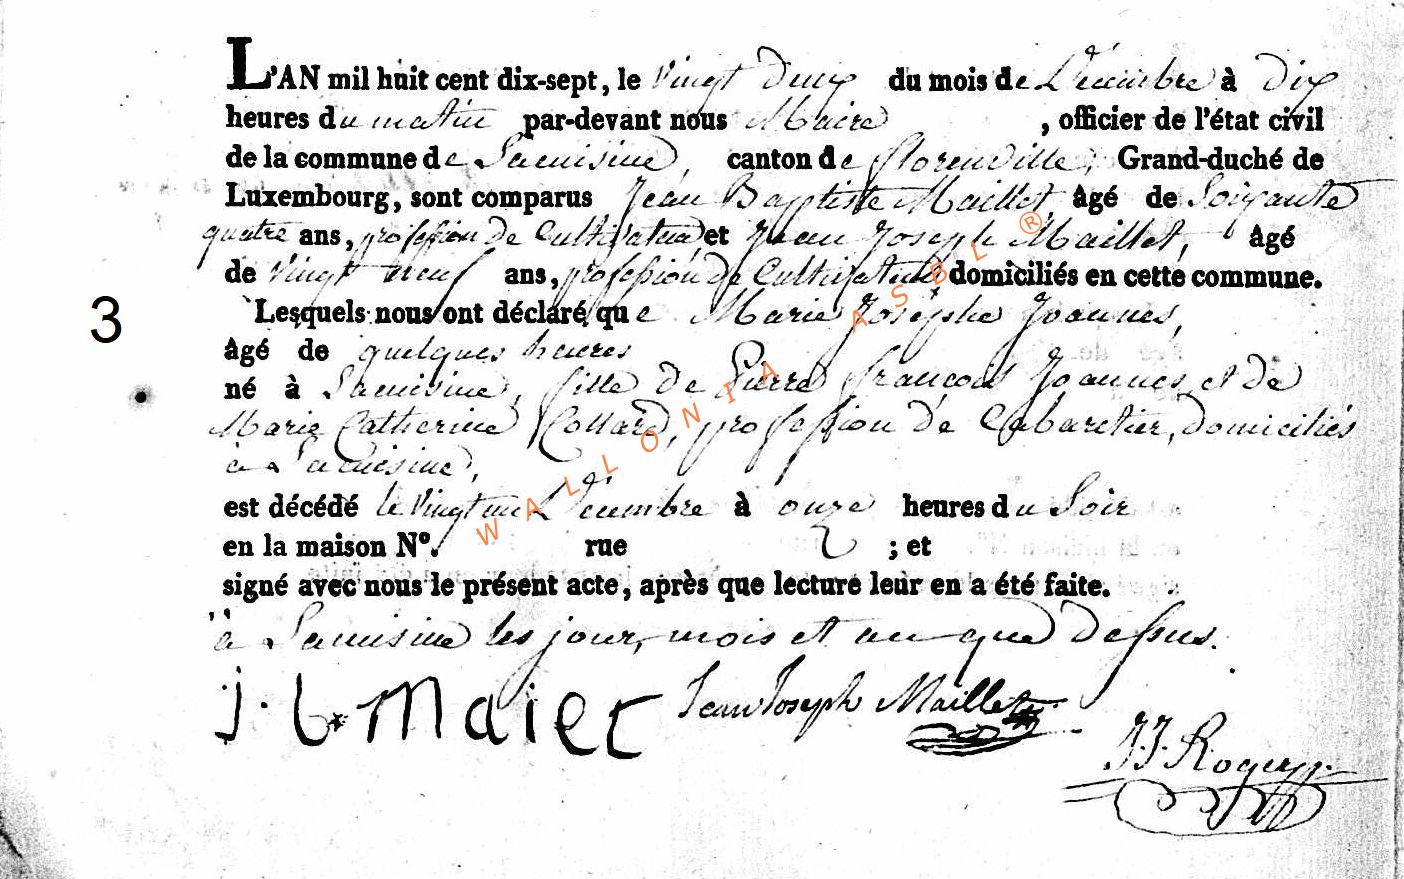 L'AN mil huit cent dix-sept, le Vingt deux du mois de Décembre à dix
heures du matin par-devant nous Maire , officier de l'état civil
de la commune de Lacuisine, canton de florenville, Grand-duché de
Luxembourg, sont comparus Jean Baptiste Maillet âgé de Soixante
quatre ans, profession de Cultivateur, et Jean Joseph Maillet, âgé
de Vingt neuf ans, profession de Cultivateur domiciliés en cette commune.
3
Lesquels nous ont déclaré que Marie Josephe Joannes,
âgé de quelques heures
né à Lacuisine, fille de Pierre françois Joannes, et de
Marie Catherine Collard, profession de Cabaretier, domiciliés
à Lacuisine,
est décédé le Vingt un Décembre à onze heures du Soir
en la maison N°. rue ; et
signé avec nous le présent acte, après que lecture leur en a été faite.
à Lacuisine les jour, mois et an que dessus.
Jean Joseph Maillet
J.J. Roger
WALLONIA ASBL ®